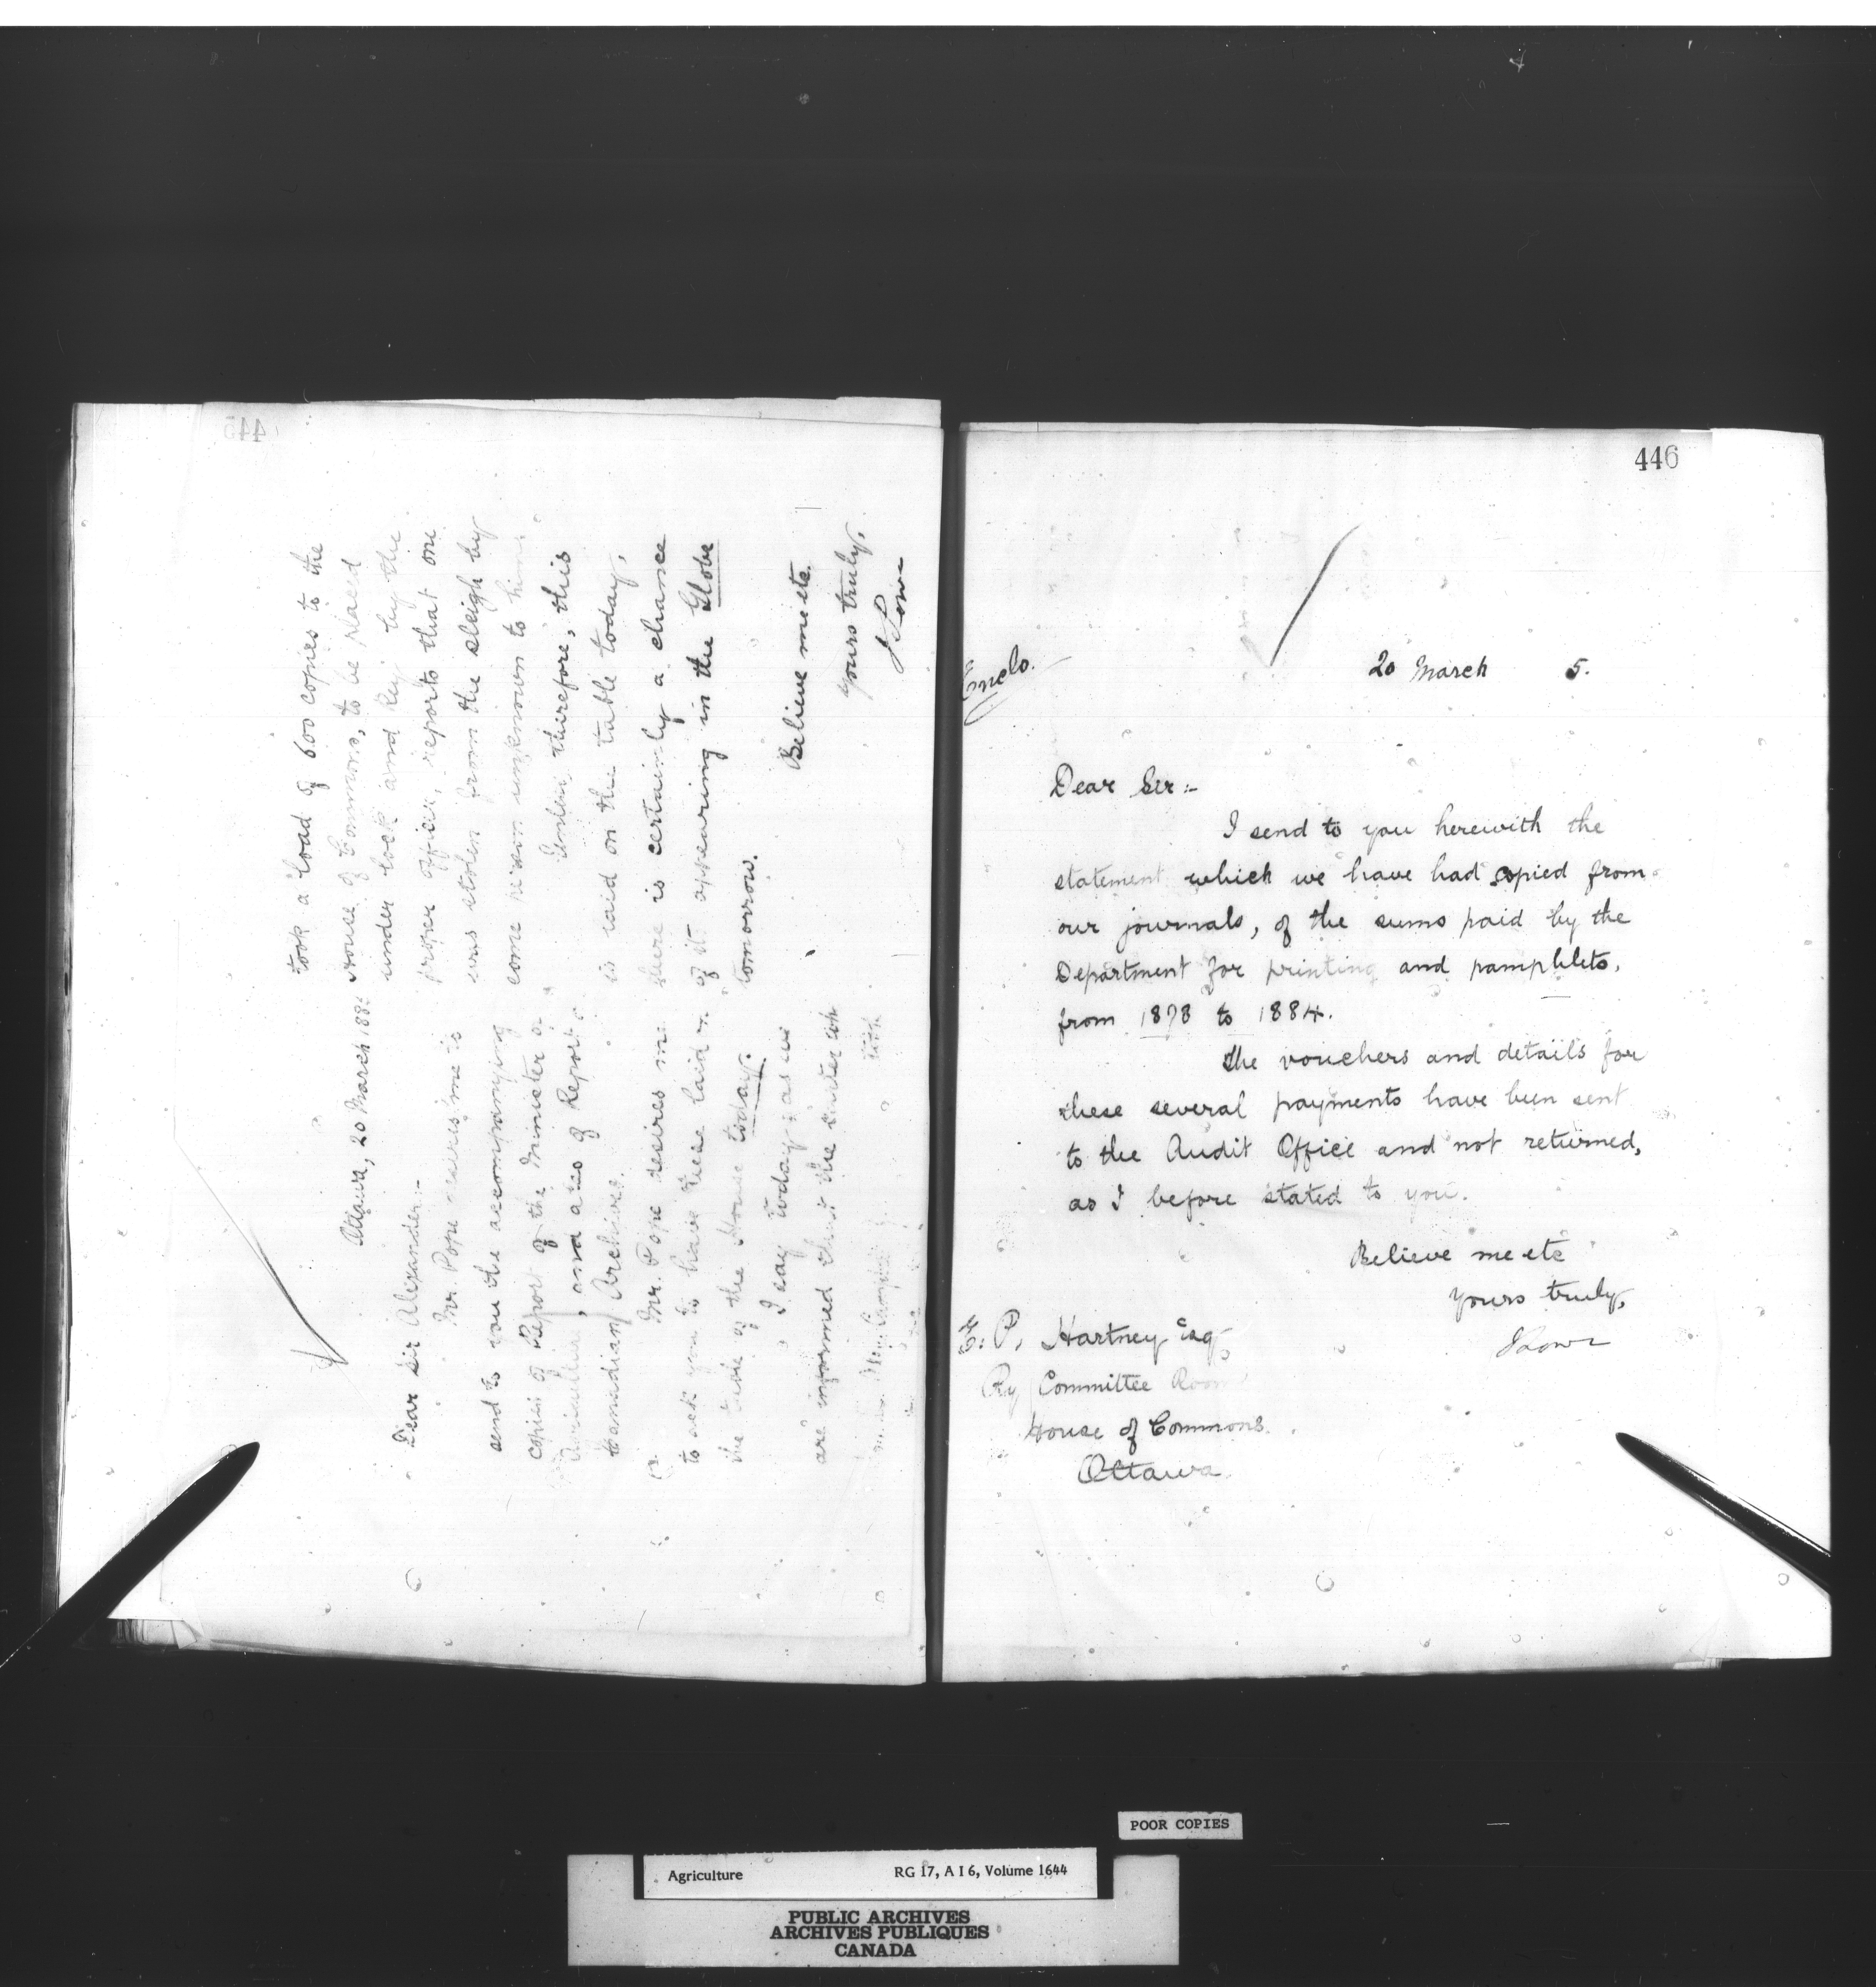 445
Ottawa, 20 March 188
Dear Sir Alexander:-
Mr. Pope desires me to
send to you the accompanying
copies of Report of the Minister of
Agriculture, and also of Report
Canadian Archives.
Mr. Pope desires me
to ask you to have these laid on
the table of the House today.
I say today as we
are informed that the
took a load of 600 copies to the
House of Commons, to be placed
under lock and key by the
proper officer, reports that one
was stolen from the sleigh by
some person unknown to him.
Unless therefore, this
is laid on the table today,
there is certainly a chance
of it appearing in the Globe
tomorrow.
Believe me etc.
Yours truly,
J Lowe
446
Enclo.
20 March 5.
Dear Sir:-
I send to you herewith the
statement which we have had copied from
our journals, of the sums paid by the
Department for printing and pamphlets,
from 1878 to 1884.
The vouchers and details for
these several payments have been sent
to the Audit Office and not returned,
as I before stated to you.
Believe me etc
Yours truly,
J Lowe
E. P. Hartney Esq
Ry Committee Room
House of Commons.
Ottawa
POOR COPIES
Agriculture RG 17, A I 6, Volume 1644
PUBLIC ARCHIVES
ARCHIVES PUBLIQUES
CANADA